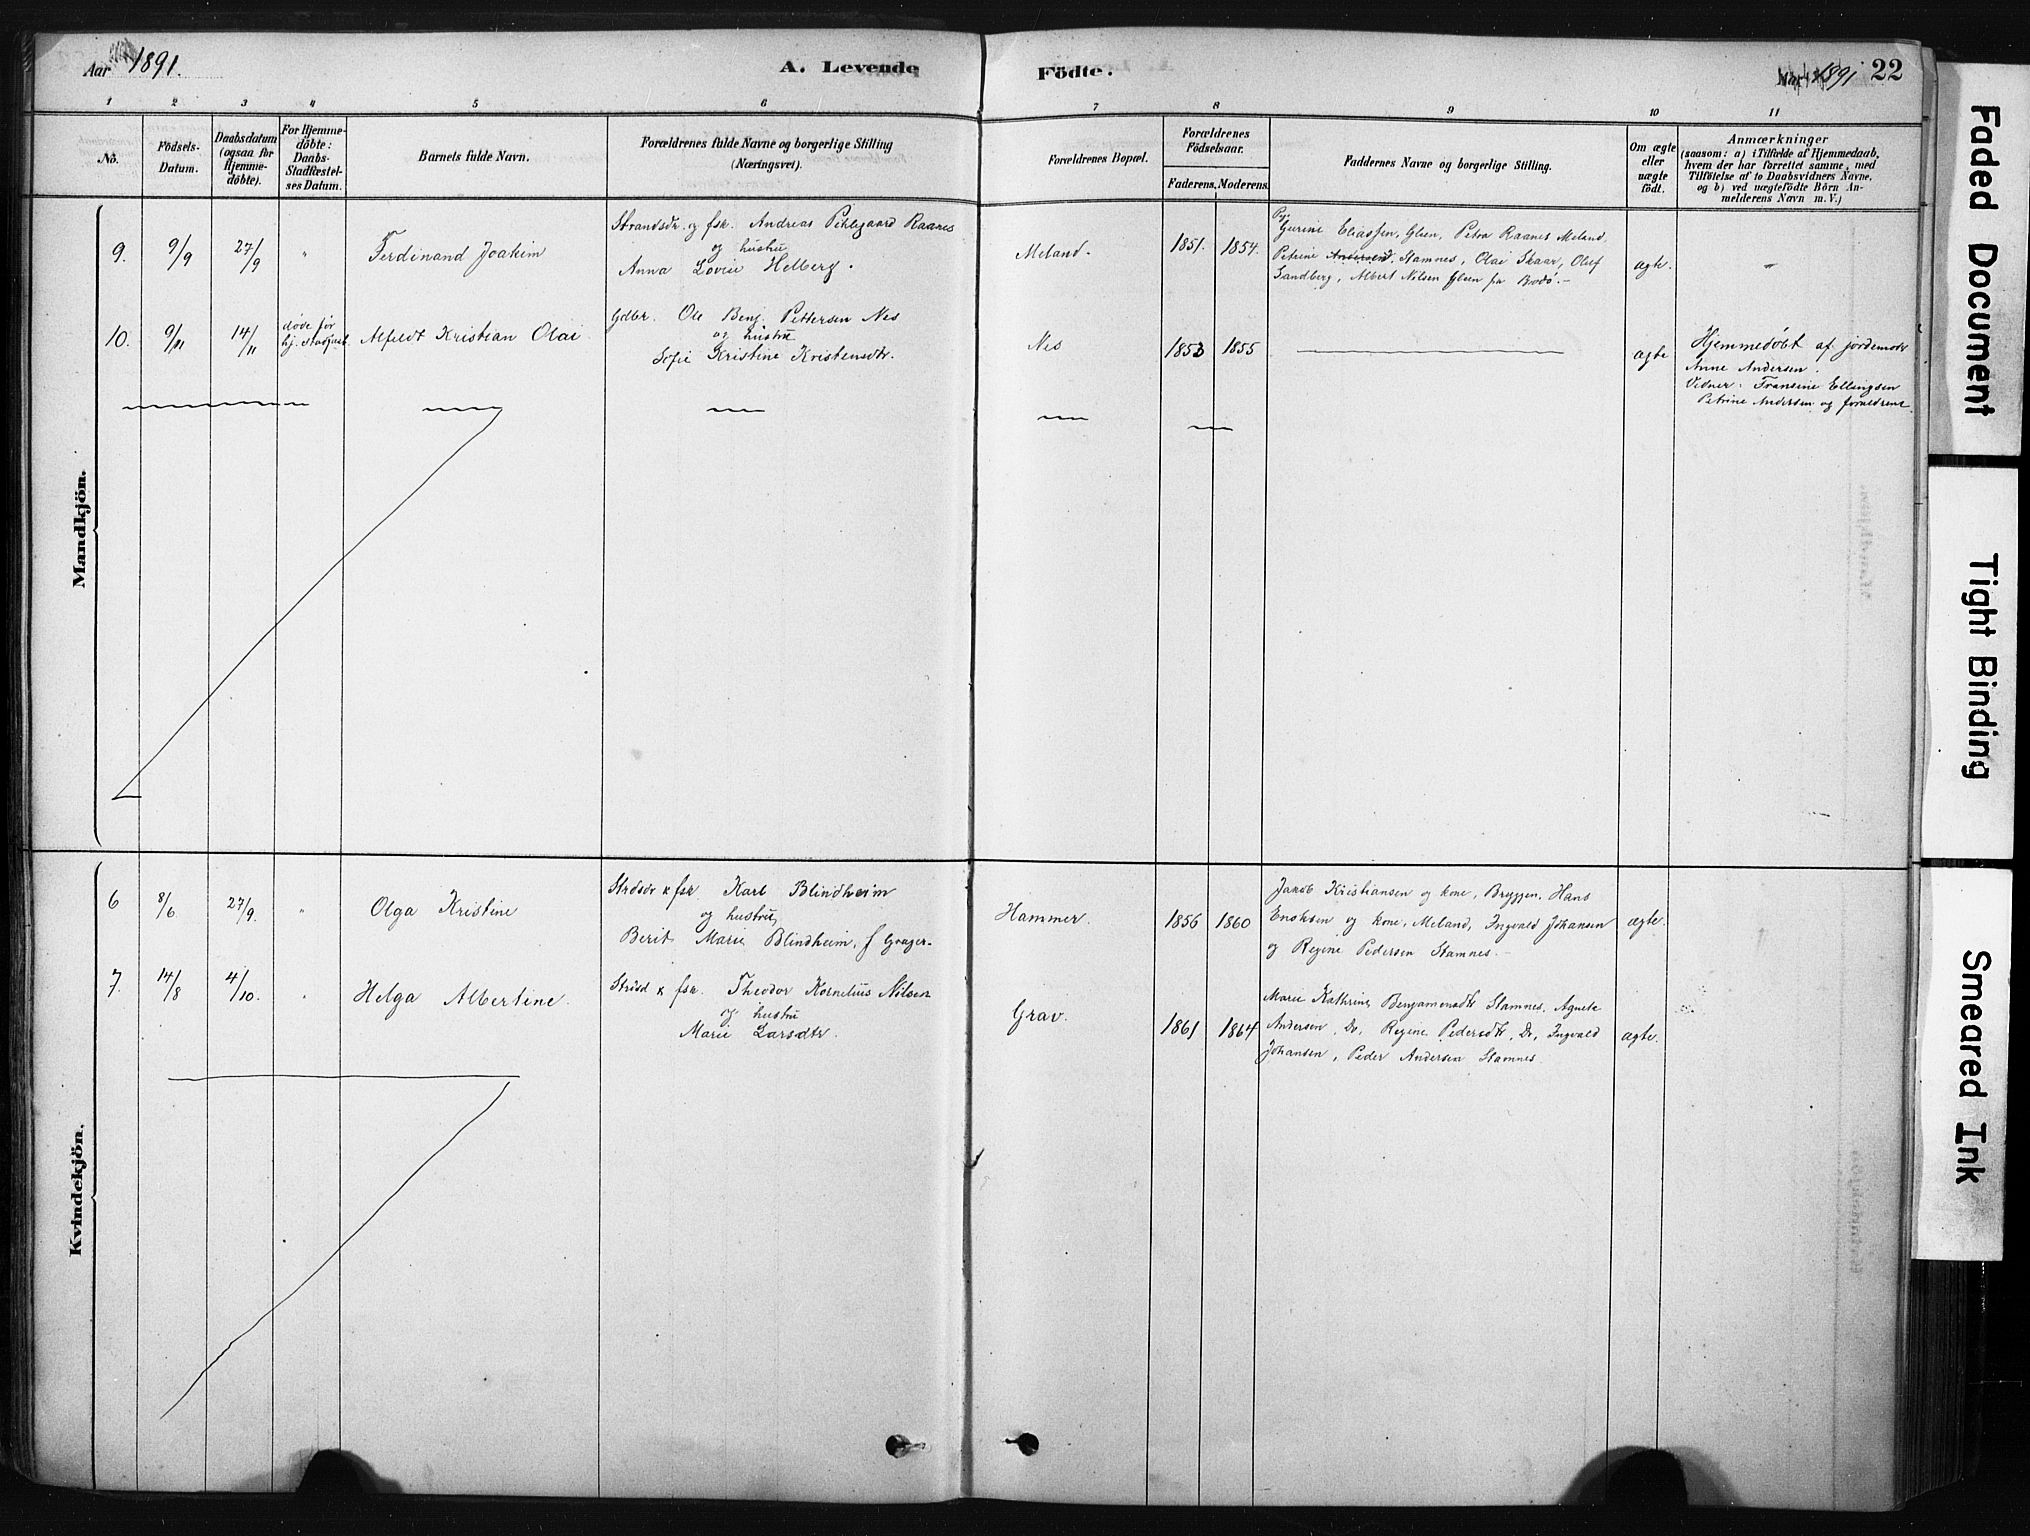 Aar 1891.
A. Levende
Födte.
Aar 1891
22
1 2 3 4 5 6 7 8 9 10 11
No.
Födsels-
Datum.
Daabsdatum
(ogsaa for
Hjemme-
döbte).
For Hjemme-
döbte:
Daabs-
Stadfæstel-
ses Datum.
Barnets fulde Navn.
Forældrenes fulde Navne og borgerlige Stilling
(Næringsvei).
Forældrenes Bopæl.
Forældrenes
Födselsaar.
Faderens. Moderens.
Faddernes Navne og borgerlige Stilling.
Om ægte
eller
uægte
födt.
Anmærkninger
(saasom: a) i Tilfælde af Hjemmedaab,
hvem der har forrettet samme, med
Tilföielse af to Daabsvidners Navne,
og b) ved uægtefödte Börn An-
melderens Navn m. V.)
Mandkjön.
9. 9/9 27/9 " Ferdinand Joakim
Strandsdr. og fsk. Andreas Pihlegaard Raanes
og hustru
Anna Lovise Helberg.
Meland.
1851. 1854.
Pg
Gurine Eliassen, Glein, Petra Raanes Meland,
Petrine Andersend. Stamnes, Olai Skaar, Oluf
Sandberg, Albert Nilsen Glein fra Bodö.-
ægte.
"
10. 9/11 14/11
døde før
hj. stadfæst.
Alfeldt Kristian Olai
Gdbr. Ole Benj. Pettersen Nes
og hustru
Sofie Kristine Kristensdtr.
Nes
1853 1855
ægte
Hjemmedøbt af jordemodr
Anne Andersen.
Vidner: Fransine Ellingsen
Petrine Andersen og forældrene.
Kvindekjön.
6 8/6 27/9. " Olga Kristine
Strdsdr & fsk Karl Blindheim
og hustru
Berit Marie Blindheim, f
Hammer.
1856 1860
Jakob Kristiansen og kone, Bryggen, Hans
Enoksen og kone, Meland, Ingvald Johansen
og Regine Pedersen Stamnes.-
ægte.
7. 14/8 4/10. " Helga Albertine.
Strdsd & fsk. Theodor Kornelius Nilsen
og hustru
Marie Larsdtr.
Grav.
1861 1864
Marie Kathrine Benjaminsdtr Stamnes, Agnete
Andersen, Do, Regine Pedersdtr, Do, Ingvald
Johansen, Peder Andersen Stamnes.
ægte.
Faded Document
Tight Binding
Smeared Ink